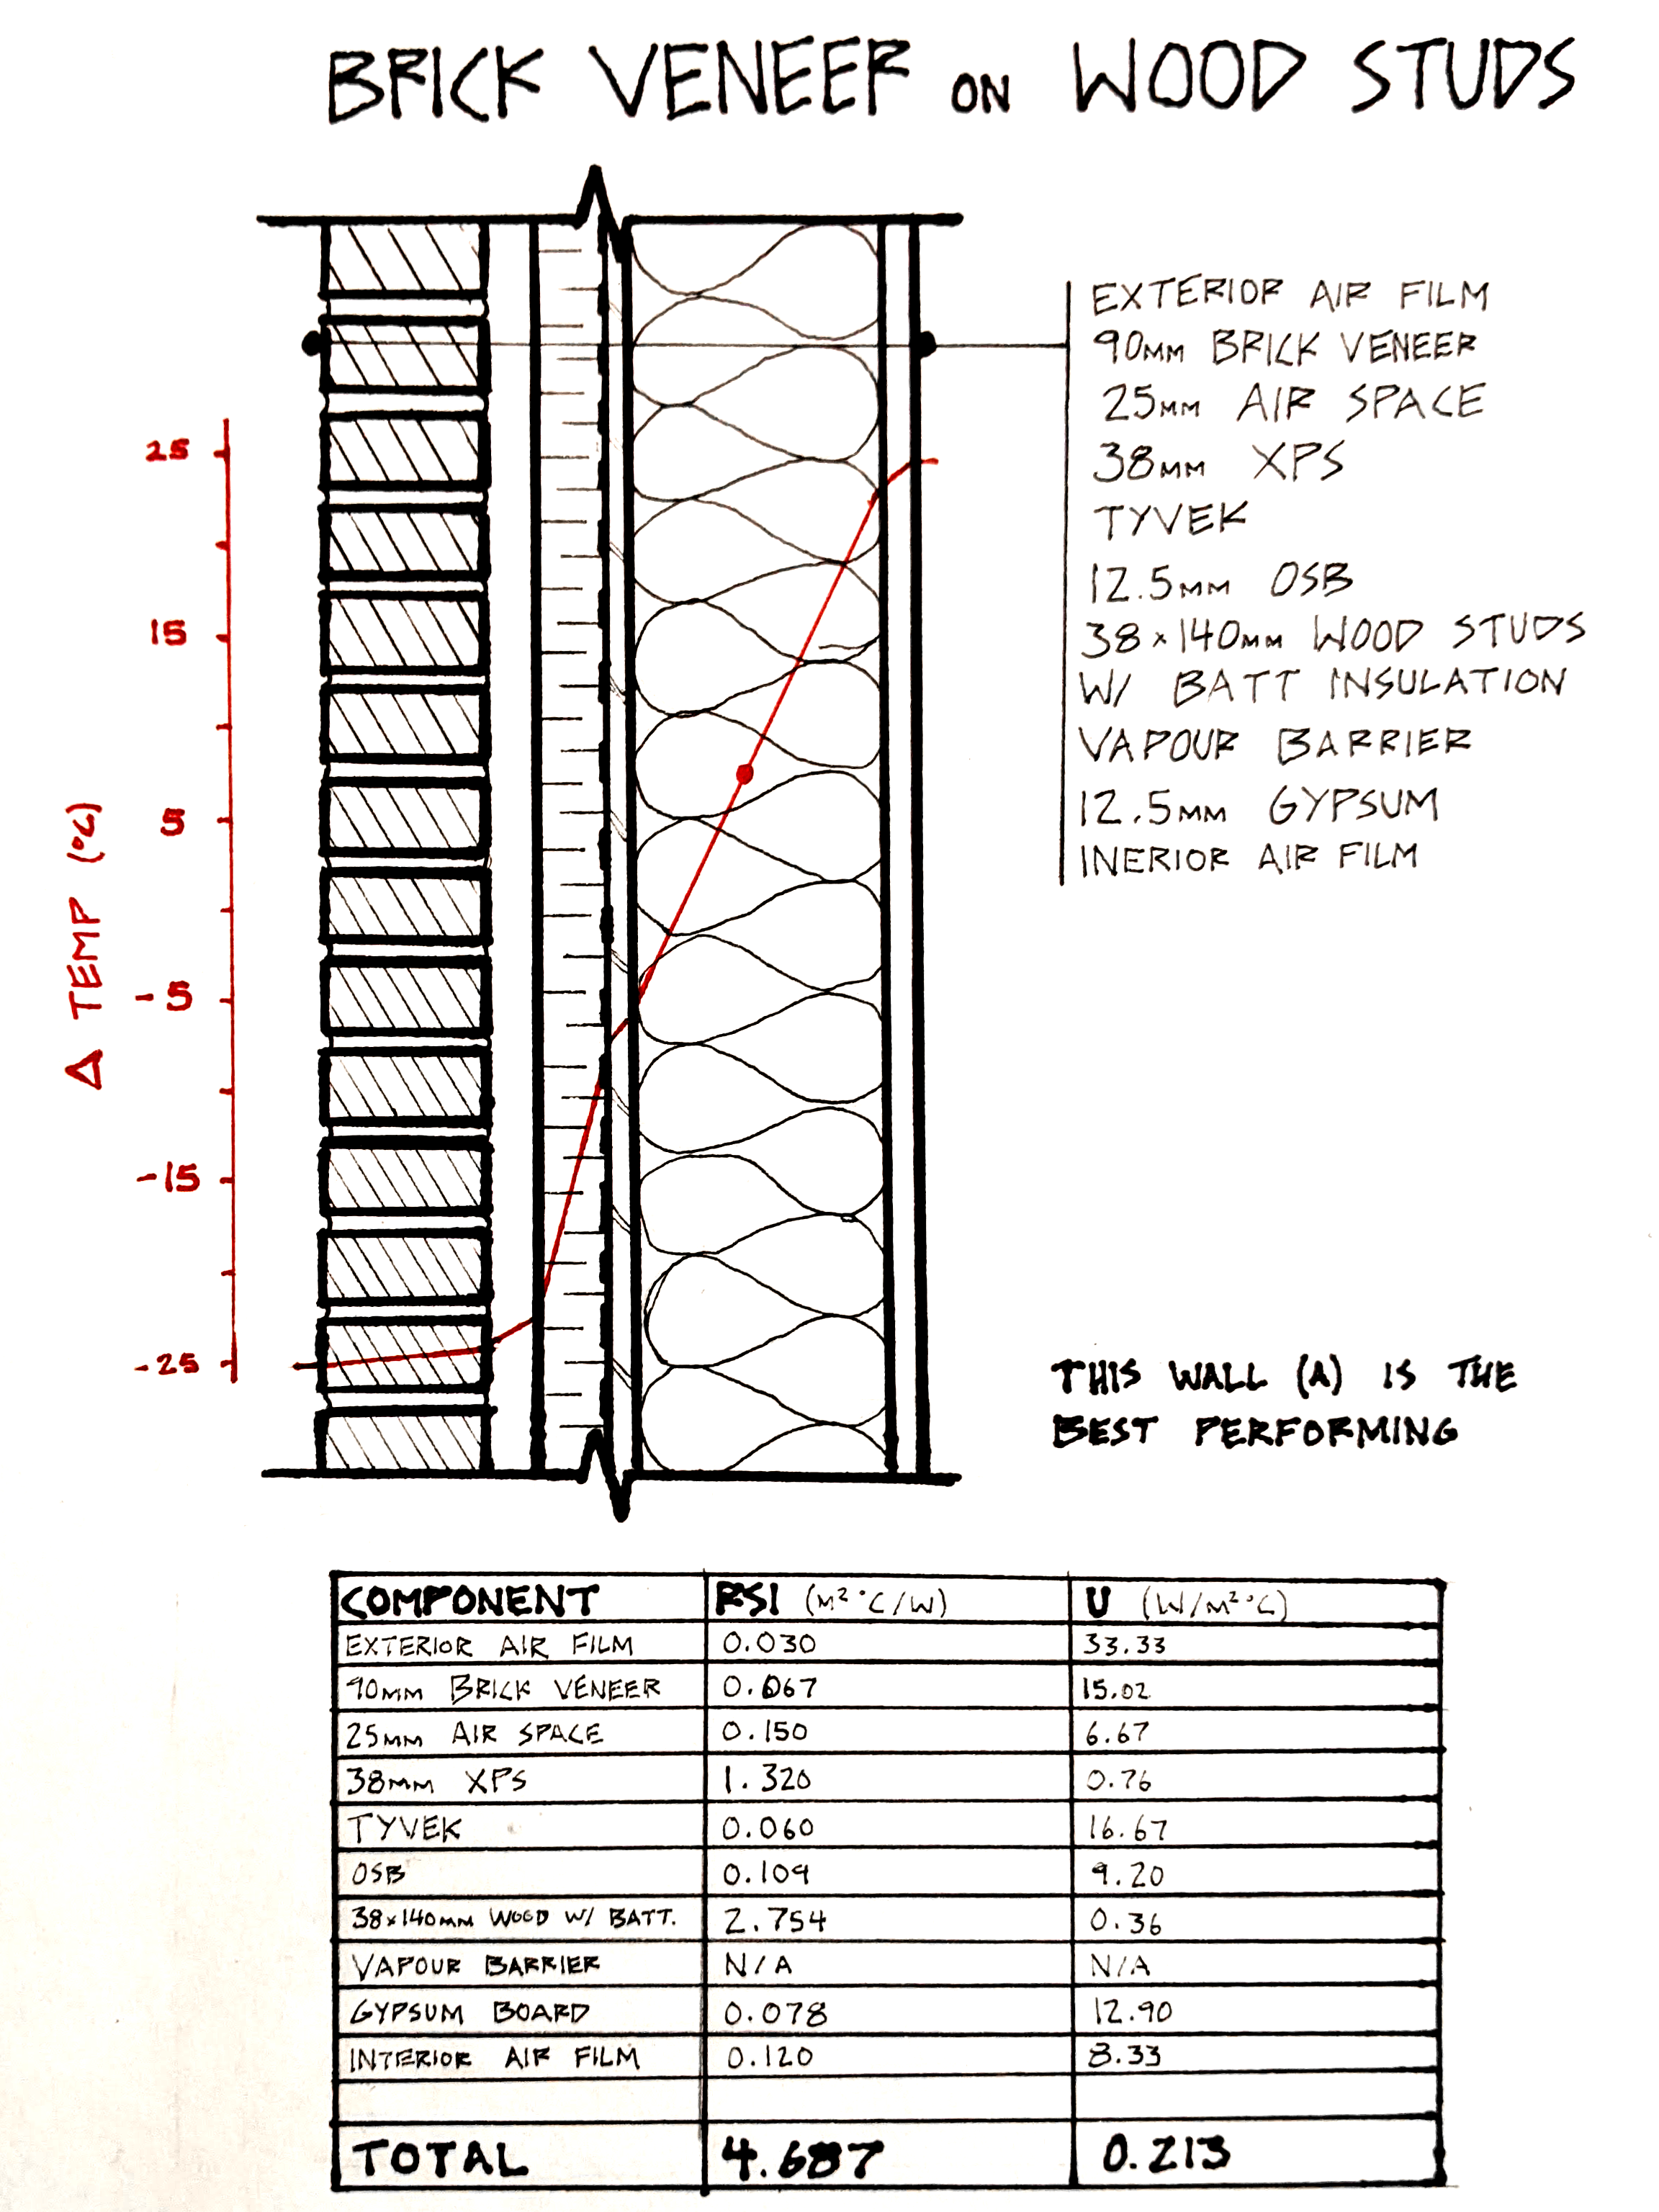 BRICK VENEER ON WOOD STUDS
EXTERIOR AIR FILM
90MM BRICK VENEER
25MM AIR SPACE
38MM XPS
TYVEK
12.5MM OSB
38×140MM WOOD STUDS
W/ BATT INSULATION
VAPOUR BARRIER
12.5MM GYPSUM
INERIOR AIR FILM
Δ TEMP (°C)
25
15
5
-5
-15
-25
THIS WALL (A) IS THE
BEST PERFORMING
COMPONENT RSI (M²°C/W) U (W/M²°C)
EXTERIOR AIR FILM 0.030 33.33
90MM BRICK VENEER 0.067 15.02
25MM AIR SPACE 0.150 6.67
38MM XPS 1.320 0.76
TYVEK 0.060 16.67
OSB 0.109 9.20
38×140MM WOOD W/ BATT. 2.754 0.36
VAPOUR BARRIER N/A N/A
GYPSUM BOARD 0.078 12.90
INTERIOR AIR FILM 0.120 8.33
TOTAL 4.687 0.213